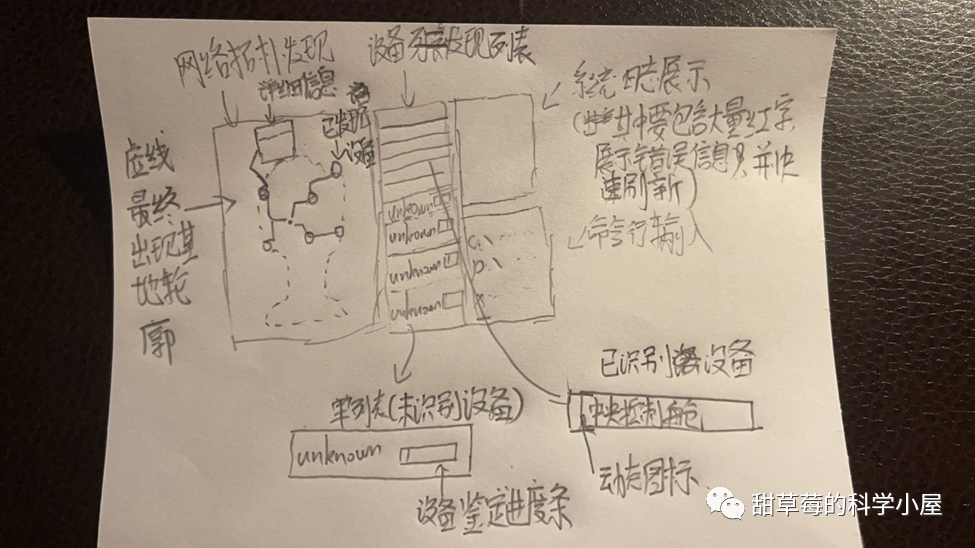 网络拓扑发现
设备发现列表
详细信息
已发现
设备
系统日志展示
(其中要包含大量红字
展示错误信息,并快
速刷新)
命令行输入
虚线
最终
出现基
地轮
廓
unknown
unknown
unknown
unknown
C:\
D:\
单列表(未识别设备)
unknown
设备鉴定进度条
已识别设备
中央控制舱
动态图标
甜草莓的科学小屋